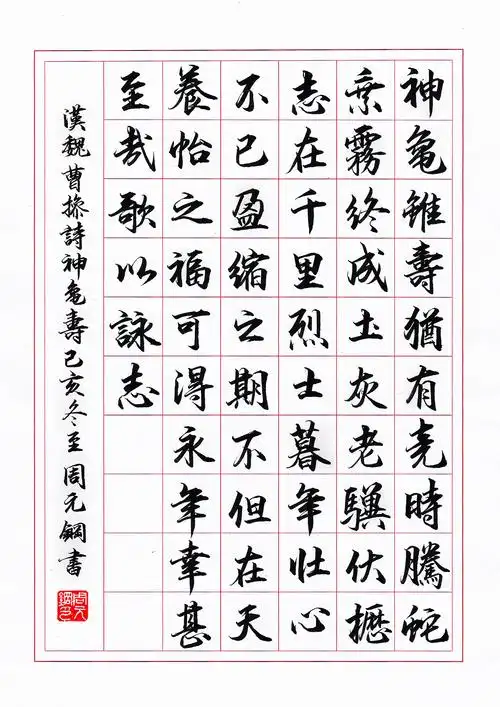 神亀雖壽猶有竟時騰蛇
乗霧終成土灰老驥伏櫪
志在千里烈士暮年壯心
不已盈縮之期不但在天
養怡之福可得永年幸甚
至哉歌以詠志
漢魏曹操詩神亀壽己亥冬至周元鋼書